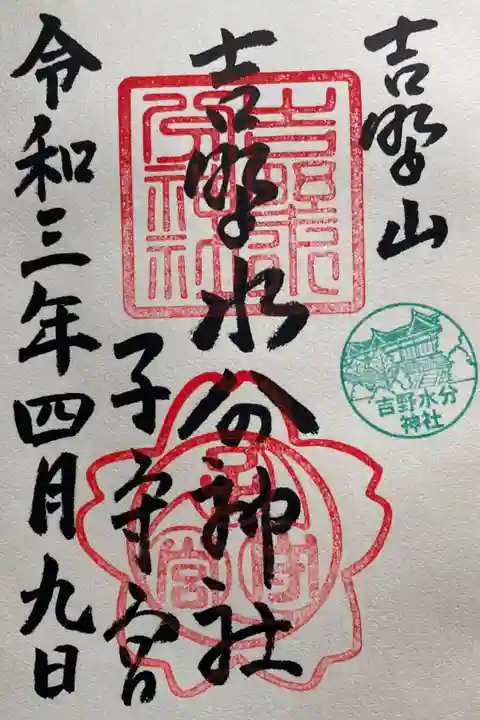 吉野山
吉野水分神社
子守宮
令和三年四月九日
吉野水分神社
吉野水分
神社
子守宮